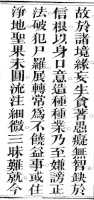 故於諸境緣妄生貪著愚癡無智闕於
信根以身口意造種種業乃至嫌謗正
法破犯尸羅展轉常為不饒益事或住
淨地聖果未圓流注細微三昧難就今